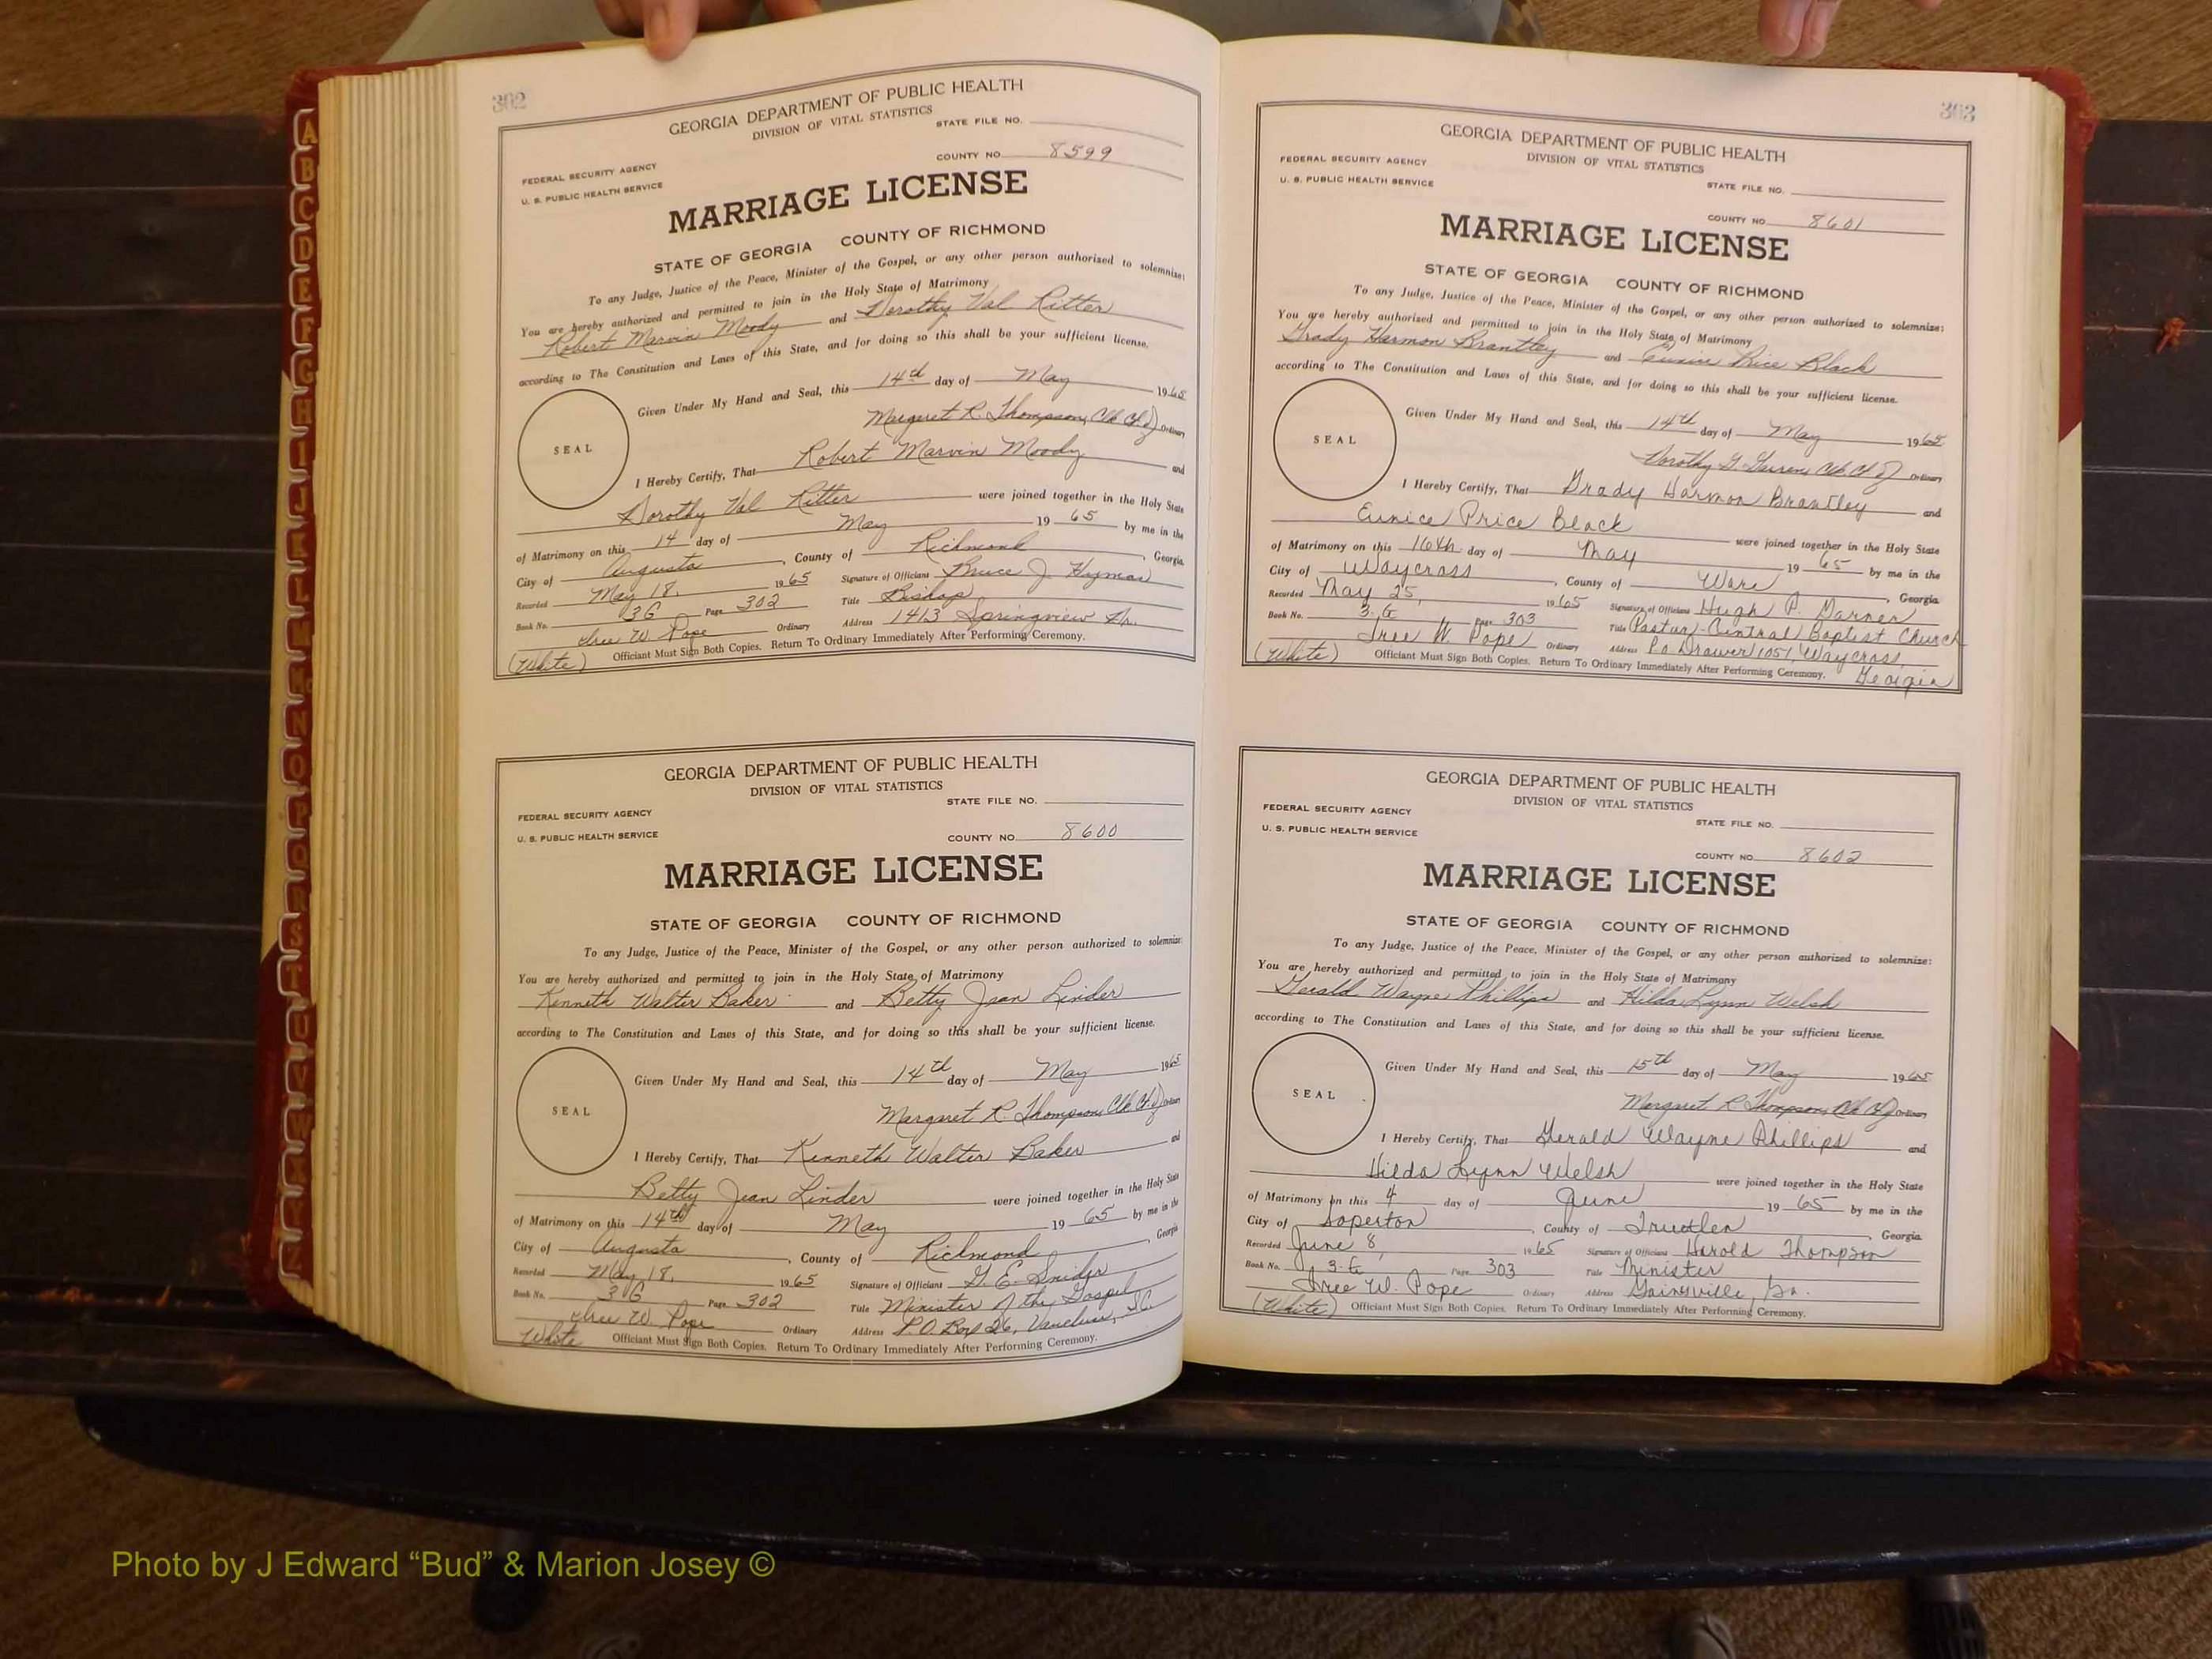 302
GEORGIA DEPARTMENT OF PUBLIC HEALTH
DIVISION OF VITAL STATISTICS
STATE FILE NO.
FEDERAL SECURITY AGENCY
COUNTY NO. 8599
U. S. PUBLIC HEALTH SERVICE
MARRIAGE LICENSE
STATE OF GEORGIA COUNTY OF RICHMOND
To any Judge, Justice of the Peace, Minister of the Gospel, or any other person authorized to solemnize:
You are hereby authorized and permitted to join in the Holy State of Matrimony
Robert Marvin Moody and Dorothy Val Ritter
according to The Constitution and Laws of this State, and for doing so this shall be your sufficient license.
Given Under My Hand and Seal, this 14th day of May 1965
Margaret R. Thompson, Clk Ct. of Ordinary
SEAL
I Hereby Certify, That Robert Marvin Moody and
Dorothy Val Ritter were joined together in the Holy State
of Matrimony on this 14 day of May 19 65 by me in the
City of Augusta, County of Richmond, Georgia
Recorded May 18, 1965 Signature of Officiant Bruce J. Hyman
Book No. 3G Page 302 Title Bishop
W. Pope Ordinary Address 1413 Springview Dr.
(White) Officiant Must Sign Both Copies. Return To Ordinary Immediately After Performing Ceremony.
GEORGIA DEPARTMENT OF PUBLIC HEALTH
DIVISION OF VITAL STATISTICS
STATE FILE NO.
FEDERAL SECURITY AGENCY
COUNTY NO. 8600
U. S. PUBLIC HEALTH SERVICE
MARRIAGE LICENSE
STATE OF GEORGIA COUNTY OF RICHMOND
To any Judge, Justice of the Peace, Minister of the Gospel, or any other person authorized to solemnize:
You are hereby authorized and permitted to join in the Holy State of Matrimony
Kenneth Walter Baker and Betty Jean Linder
according to The Constitution and Laws of this State, and for doing so this shall be your sufficient license.
Given Under My Hand and Seal, this 14th day of May 1965
Margaret R. Thompson, Clk Ct. of Ordinary
SEAL
I Hereby Certify, That Kenneth Walter Baker and
Betty Jean Linder were joined together in the Holy State
of Matrimony on this 14th day of May 19 65 by me in the
City of Augusta, County of Richmond, Georgia
Recorded May 18, 1965 Signature of Officiant G. E. Snider
Book No. 3G Page 302 Title Minister of the Gospel
W. Pope Ordinary Address P.O. Box 26, Vaucluse, S.C.
White Officiant Must Sign Both Copies. Return To Ordinary Immediately After Performing Ceremony.
303
GEORGIA DEPARTMENT OF PUBLIC HEALTH
FEDERAL SECURITY AGENCY DIVISION OF VITAL STATISTICS
U. S. PUBLIC HEALTH SERVICE STATE FILE NO.
COUNTY NO. 8601
MARRIAGE LICENSE
STATE OF GEORGIA COUNTY OF RICHMOND
To any Judge, Justice of the Peace, Minister of the Gospel, or any other person authorized to solemnize:
You are hereby authorized and permitted to join in the Holy State of Matrimony
Grady Harmon Brantley and Eunice Price Black
according to The Constitution and Laws of this State, and for doing so this shall be your sufficient license.
Given Under My Hand and Seal, this 14th day of May 1965
Dorothy G. Clk. Ct. of Ordinary
SEAL
I Hereby Certify, That Grady Harmon Brantley and
Eunice Price Black were joined together in the Holy State
of Matrimony on this 16th day of May 19 65 by me in the
City of Waycross, County of Ware, Georgia
Recorded May 25, 1965 Signature of Officiant Hugh P. Garner
Book No. 3-G Page 303 Title Pastor-Central Baptist Church
W. Pope Ordinary Address P.O. Drawer 1051, Waycross,
(White) Officiant Must Sign Both Copies. Return To Ordinary Immediately After Performing Ceremony. Georgia
GEORGIA DEPARTMENT OF PUBLIC HEALTH
DIVISION OF VITAL STATISTICS
FEDERAL SECURITY AGENCY
STATE FILE NO.
U. S. PUBLIC HEALTH SERVICE
COUNTY NO. 8602
MARRIAGE LICENSE
STATE OF GEORGIA COUNTY OF RICHMOND
To any Judge, Justice of the Peace, Minister of the Gospel, or any other person authorized to solemnize:
You are hereby authorized and permitted to join in the Holy State of Matrimony
Gerald Wayne Phillips and Hilda Lynn Welsh
according to The Constitution and Laws of this State, and for doing so this shall be your sufficient license.
Given Under My Hand and Seal, this 15th day of May 1965
Margaret R Thompson, Clk Ct of Ordinary
SEAL
I Hereby Certify, That Gerald Wayne Phillips and
Hilda Lynn Welsh were joined together in the Holy State
of Matrimony on this 4 day of June 19 65 by me in the
City of Soperton, County of Truetlen, Georgia
Recorded June 8, 1965 Signature of Officiant Harold Thompson
Book No. 3-G Page 303 Title Minister
W. Pope Ordinary Address Gainsville, Ga.
(White) Officiant Must Sign Both Copies. Return To Ordinary Immediately After Performing Ceremony.
A
B
C
D
E
F
G
H
I
J
K
L
M
Mc
N
O
P
Q
R
S
T
U
V
W
X
Y
Z
Photo by J Edward “Bud” & Marion Josey ©